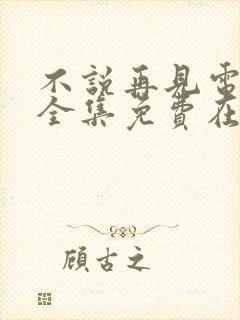 不說再見電
全集免費在
顧古之